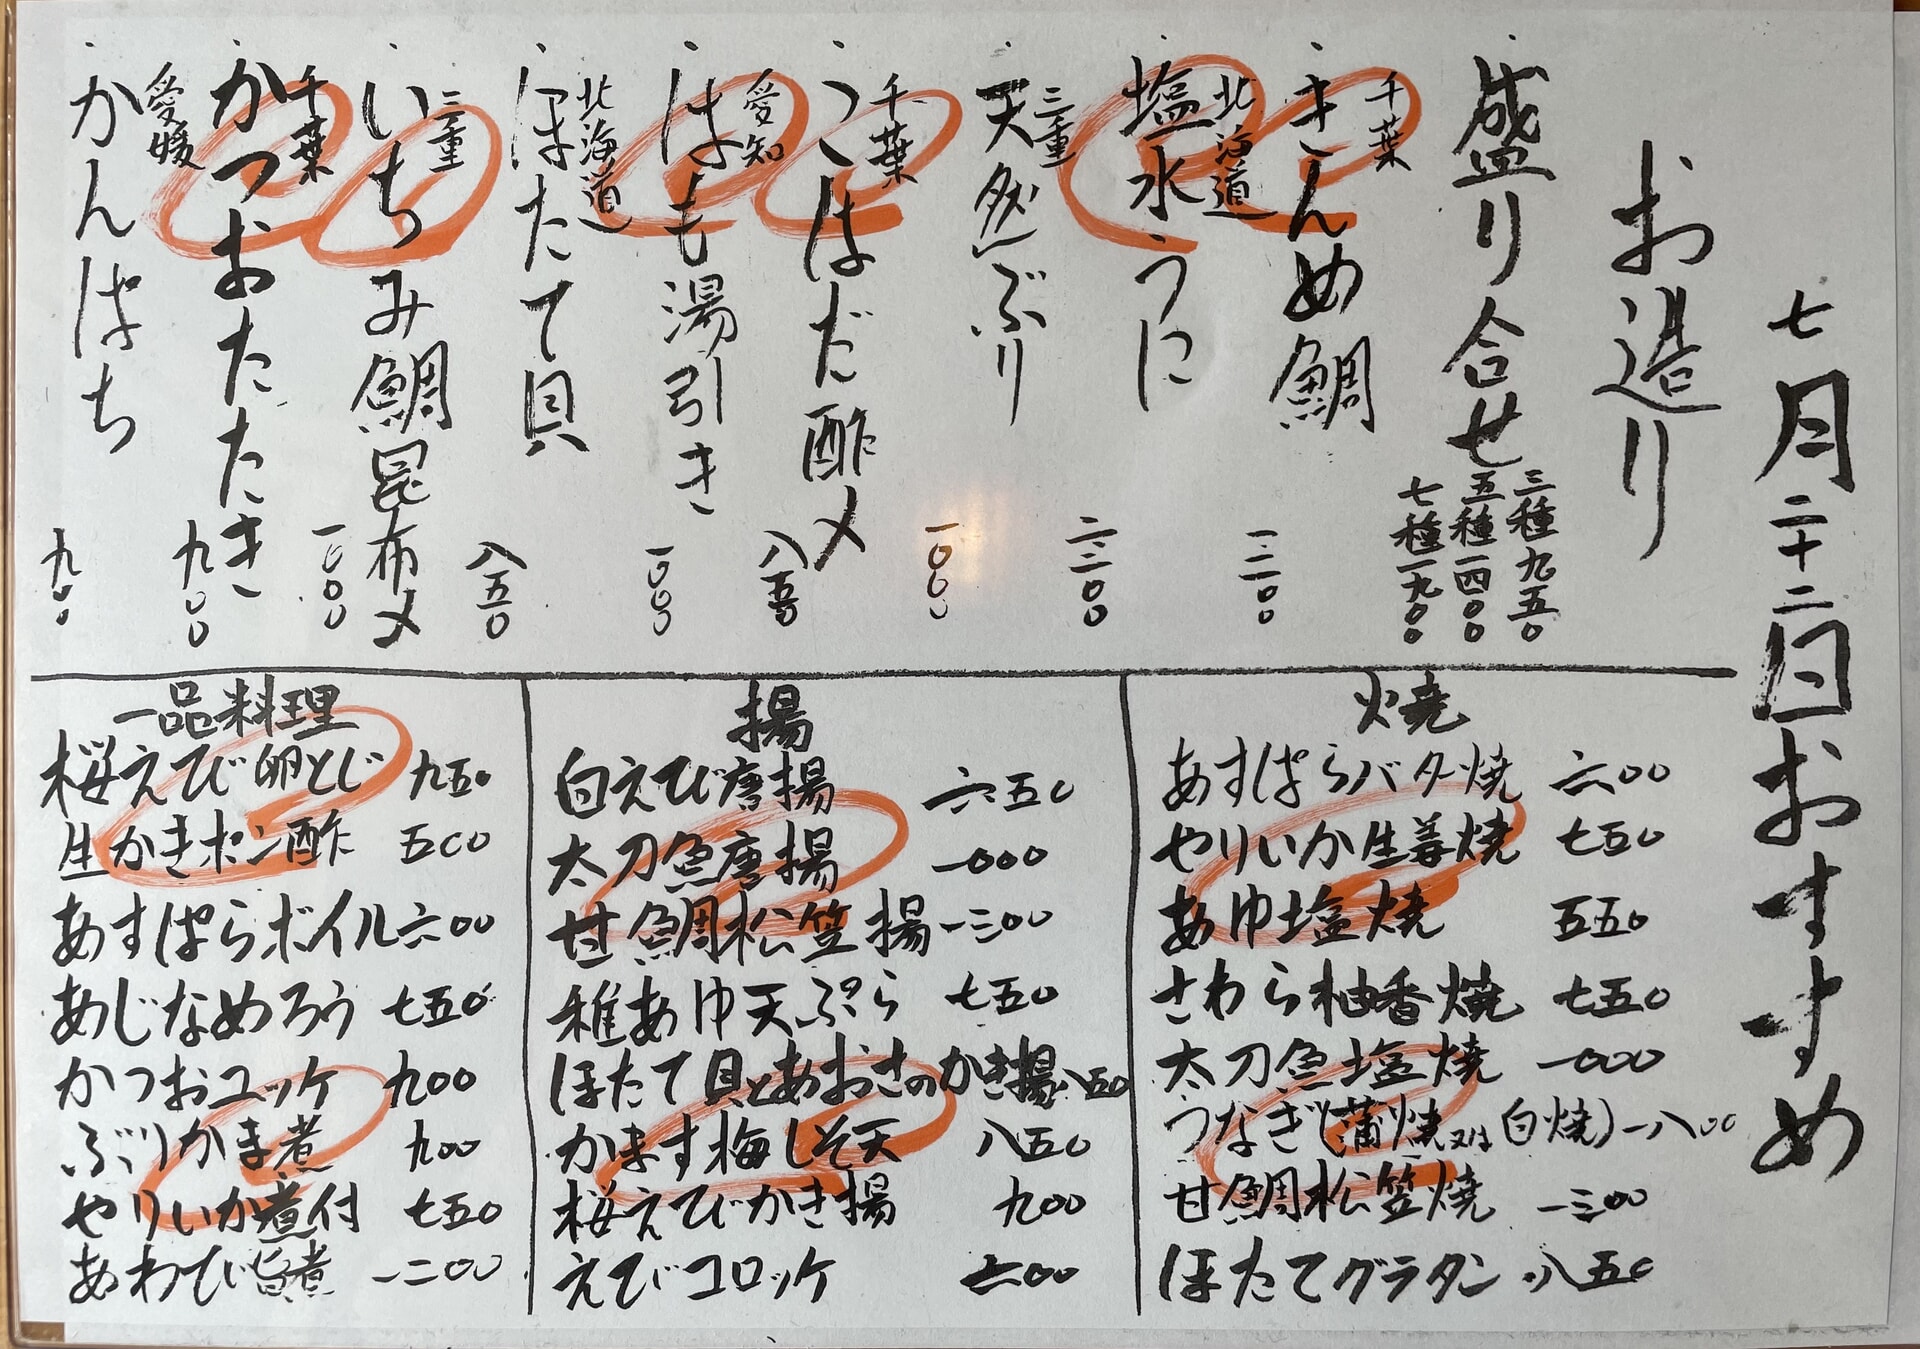 七月二十二日おすすめ
お造り
盛り合せ 三種九五〇
五種一四〇〇
七種一九〇〇
千葉 きんめ鯛 一、二〇〇
北海道 塩水うに 二、二〇〇
三重 天然ぶり 一〇〇〇
千葉 こはだ酢〆 八五〇
愛知 はも湯引き 一〇〇〇
北海道 ほたて貝 八五〇
三重 いちみ鯛昆布〆 一〇〇〇
千葉 かつおたたき 九〇〇
愛媛 かんぱち 九〇〇
焼
あすぱらバター焼 六〇〇
やりいか生姜焼 七五〇
あゆ塩焼 五五〇
さわら柚香焼 七五〇
太刀魚塩焼 一〇〇〇
うなぎ(蒲焼又は白焼) 一八〇〇
甘鯛松笠焼 一三〇〇
ほたてグラタン 八五〇
揚
白えび唐揚 六五〇
太刀魚唐揚 一〇〇〇
甘鯛松笠揚 一三〇〇
稚あゆ天ぷら 七五〇
ほたて貝とあおさのかき揚 八五〇
かます梅しそ天 八五〇
桜えびかき揚 九〇〇
えびコロッケ 六〇〇
一品料理
桜えび卵とじ 九五〇
生かきポン酢 五〇〇
あすぱらボイル 六〇〇
あじなめろう 七五〇
かつおユッケ 九〇〇
ぶりかま煮 九〇〇
やりいか煮付 七五〇
あわび旨煮 一二〇〇